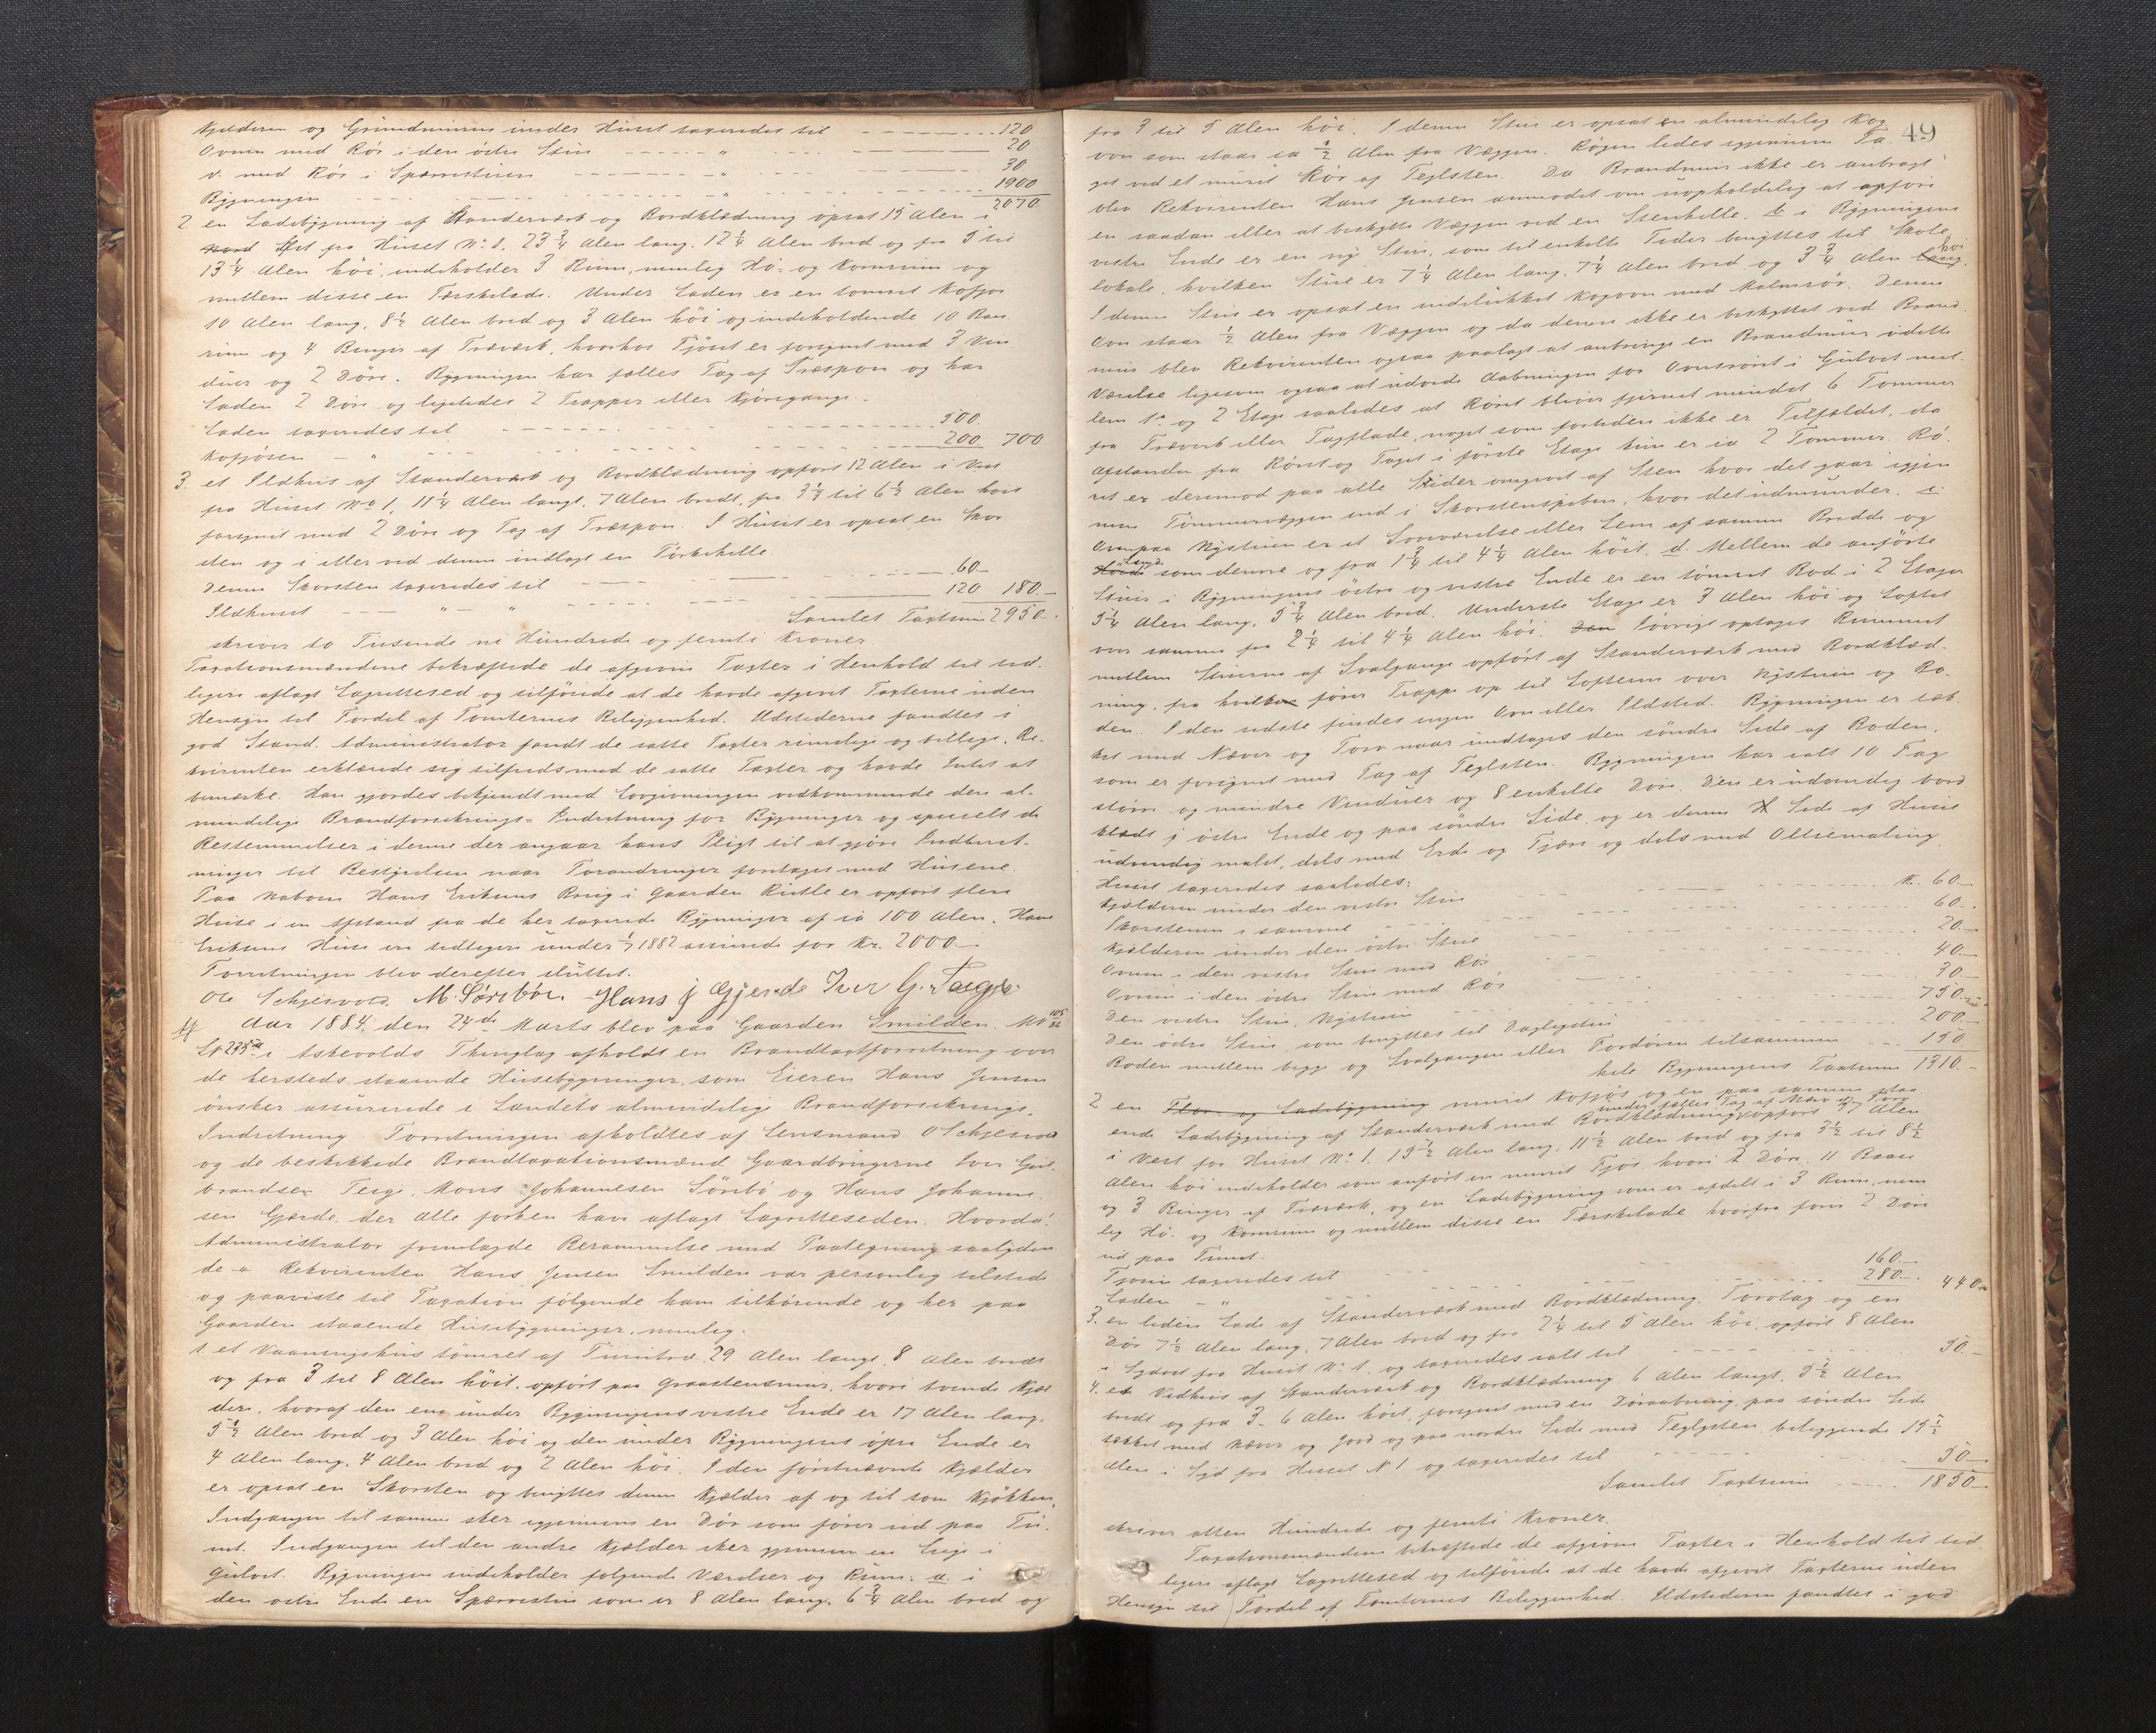 Kjelderen og Grundmuren under Huset taxeredes til 120
Ovnen med Rör i den östre Stue " 20
v. med Rör i Sparrestuen " 30
Bygningen " 1900
2070
2 en Ladebygning af Standerværk og Bordklædning opsat 15 Alen i
Nord Öst fra Huset No 1. 23 3/4 Alen lang, 12 1/4 Alen bred og fra 5 til
13 1/4 Alen höi, indeholder 3 Rum, nemlig Hö- og Kornrum og
mellem disse en Tærskelade. Under Laden er en tömret Kofjös
10 Alen lang, 8 1/2 Alen bred og 3 Alen höi og indeholdende 10 Baa-
serum og 4 Binger af Træværk, hvorhos Fjöset er forsynet med 3 Vin
duer og 2 Döre. Bygningen har fælles Tag af Træspon og har
Laden 2 Döre og ligeledes 2 Trapper eller Kjöregange.
Laden taxeredes til 500
Kofjösen " 200 700
3. et Ildhus af Standerværk og Bordklædning opfört 12 Alen i Vest
fra Huset No 1, 11 1/4 Alen langt, 7 Alen bredt, fra 3 1/4 til 6 1/2 Alen höit
forsynet med 2 Döre og Tag af Træspon. I Huset er opsat en Skor
sten og i eller ved denne indlagt en Törkehelle.
Denne Skorsten taxeredes til 60.-
Ildhuset " " 120 180.-
Samlet Taxtsum 2950.-
skriver to Tusende ni Hundrede og femti Kroner.
Taxationsmændene bekræftede de afgivne Taxter i Henhold til tid-
ligere aflagt Lagrettesed og tilföiede at de havde afgivet Taxterne uden
Hensyn til Fordel af Tomternes Beliggenhed. Ildstederne fandtes i
god Stand. Administrator fandt de satte Taxter rimelige og billige. Re-
kvirenten erklærede sig tilfreds med de satte Taxter og havde Intet at
bemærke. Han gjordes bekjendt med Lovgivningen vedkommende den al-
mindelige Brandforsikrings-Indretning for Bygninger og specielt de
Bestemmelser i denne der angaar hans Pligt til at gjöre Indberet-
ninger til Bestyrelsen naar Forandringer foretages med Husene.
Paa Naboen Hans Eriksens Brug i Gaarden Risle er opfört flere
Huse i en Afstand fra de her taxerede Bygninger af ca 100 Alen. Hans
Eriksens Huse ere tidligere under 1/7 1882 assurerede for Kr. 2000.-
Forretningen blev derefter sluttet.
Ole Schjesvold. M. Sørebøe. Hans J Gjerde Iver G. Teige
Aar 1884 den 24de Marts blev paa Gaarden Smilden, MN 105
L 275a i Askevolds Thinglag afholdt en Brandtaxtforretning over
de hersteds staaende Husebygninger, som Eieren Hans Jensen
önsker assurerede i Landets almindelige Brandforsikrings-
Indretning. Forretningen afholdtes af Lensmand O Schjesvold
og de beskikkede Brandtaxationsmænd Gaardbrugerne Iver Gul-
brandsen Teige, Mons Johannesen Sörebö og Hans Johanne-
sen Gjerde, der alle forhen have aflagt Lagretteseden. Hvorda:
Administrator fremlagde Berammelse med Paategning saalyden
de a Rekvirenten Hans Jensen Smilden var personlig tilstede
og paaviste til Taxation fölgende ham tilhörende og her paa
Gaarden staaende Husebygninger, nemlig:
1. et Vaaningshus tömret af Furutræ 29 Alen langt, 8 Alen bredt
og fra 3 til 8 Alen höit, opfört paa Graastensmur, hvori tvende Kjæl
dere, hvoraf den ene under Bygningens vestre Ende er 17 Alen lang,
5 1/2 Alen bred og 3 Alen höi og den under Bygningens öpre Ende er
4 Alen lang, 4 Alen bred og 2 Alen höi. I den förstnævnte Kjælder
er opsat en Skorsten og benyttes denne Kjælder af og til som Kjökken.
Indgangen til samme sker igjennem en Dör som förer ud paa Tu-
net. Indgangen til den anden Kjælder sker gjennem en Luge i
Gulvet. Bygningen indeholder fölgende Værelser og Rum: a. i
den östre Ende en Sparrestue som er 8 Alen lang, 6 3/4 Alen bred og
49
fra 3 til 5 Alen höi. I denne Stue er opsat en almindelig Kog
ovn som staar ca 1/2 Alen fra Væggen. Rögen ledes igjennem Ta-
get ved et muret Rör af Teglsten. Da Brandmur ikke er anbragt
blev Rekvirenten Hans Jensen anmodet om uopholdelig at opföre
en saadan eller at beskytte Væggen ved en Stenhelle. b i Bygningens
vestre Ende er en ny Stue, som til enkelte Tider benyttes til Skole
lokale, hvilken Stue er 7 1/4 Alen lang, 7 1/4 Alen bred og 3 3/4 Alen lang höi.
I denne Stue er opsat en indelukket Kogovn med Malmrör. Denne
Ovn staar 1/2 Alen fra Væggen og da denne ikke er beskyttet ved Brand
mur blev Rekvirenten ogsaa paalagt at anbringe en Brandmur i dette
Værelse ligesom ogsaa at udvide Aabningen for Ovnsröret i Gulvet mel-
lem 1ste og 2 Etage saaledes at Röret bliver fjernet mindst 6 Tommer
fra Træværk eller Tagflade, noget som fortiden ikke er Tilfældet, da
Afstanden fra Röret og Taget i förste Etage kun er ca 2 Tommer. Rö-
ret er derimod paa alle Sider omgivet af Sten hvor det gaar igjen
nem Tömmervæggen ind i Skorstenspiben, hvor det udmunder. c.
Ovenpaa Nystuen er et Soveværelse eller Lem af samme Bredde og
Höide Længde som denne og fra 1 3/4 til 4 1/4 Alen höit. d. Mellem de anförte
Stuer i Bygningens östre og vestre Ende er en tömret Bod i 2 Etager
5 1/4 Alen lang, 5 3/4 Alen bred. Underste Etage er 3 Alen höi og Loftet
over samme fra 2 1/4 til 4 1/4 Alen höi. Den Iövrigt optages Rummet
mellem Stuerne af Svalgange opfört af Standerværk med Bordklæd-
ning, fra hvilken förer Trappe op til Lofterne over Nystuen og Bo-
den. I den sidste findes ingen Ovn eller Ildsted. Bygningen er tæk
ket med Næver og Torv naar undtages den söndre Side af Boden,
som er forsynet med Tag af Teglsten. Bygningen har ialt 10 Fag
större og mindre Vinduer og 8 enkelte Döre. Den er udvendig bord
klædt i östre Ende og paa söndre Side, og er denne Side af Huset
udvendig malet, dels med Erde og Tjære og dels med Oliemaling.
Huset taxeredes saaledes:
Kjælderen under den vestre Stue Kr. 60.-
Skorstenen i samme 60.-
Kjælderen under den östre Stue 20.-
Ovnen i den vestre Stue med Rör 40.-
Ovnen i den östre Stue med Rör 30.-
Den vestre Stue, Nystuen 750.-
Den östre Stue, som benyttes til Dagligstue 200.-
Boden mellem begge og Svalgangen eller Fordören tilsammen 150.-
hele Bygningens Taxtsum 1310.-
2 en Flor- og Ladebygning muret Kofjös og en paa samme staa
ende Ladebygning af Standerværk med Bordklædning under fælles Tag af Næver og Torv opfört 37 Alen
i Vest for Huset No 1. 15 1/2 Alen lang, 11 1/2 Alen bred og fra 3 1/2 til 8 1/2
Alen höi indeholder som anfört en muret Fjös hvori 2 Döre, 11 Baase
og 3 Binger af Træværk, og en Ladebygning som er afdelt i 3 Rum, nem
lig Hö- og Kornrum og mellem disse en Tærskelade hvorfra förer 2 Döre
ud paa Tunet.
Fjösen taxeredes til 160.-
Laden " 280.- 440.-
3. en liden Lade af Standerværk med Bordklædning. Torvtag og en
Dör 7 1/2 Alen lang, 7 Alen bred og fra 2 1/4 til 5 Alen höi, opfört 8 Alen
i Sydost fra Huset No 1. og taxeredes ialt til 50.-
4. et Vedhus af Standerværk og Bordklædning 6 Alen langt, 5 1/2 Alen
bredt og fra 3-6 Alen höit, forsynet med en Döraabning paa söndre Side
tækket med Næver og Jord og paa nordre Side med Teglsten beliggende 15 1/2
Alen i Syd fra Huset N 1 og taxeredes til 50.-
Samlet Taxtsum 1850.-
skriver atten Hundrede og femti Kroner.
Taxationsmændene bekræftede de afgivne Taxter i Henhold til tid
ligere aflagt Lagrettesed og tilföiede at de havde afgivet Taxterne uden
Hensyn til Fordel af Tomternes Beliggenhed. Ildstederne fandtes i god